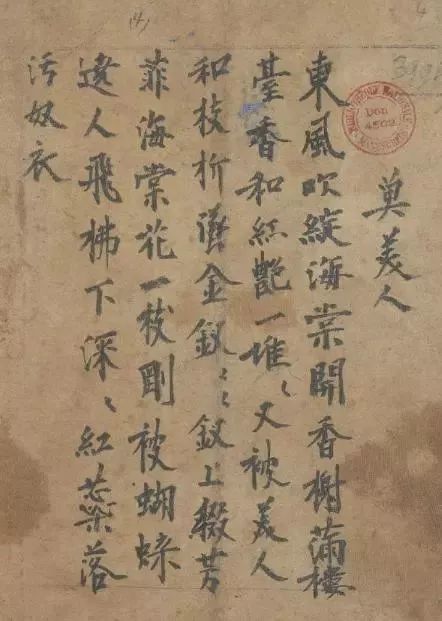 (4)
4
DON
4502
莫美人
東風吹綻海棠開香榭滿樓
臺香和紅艷一堆〻又被美人
和枝折墜金釵〻釵上綴芳
菲海棠花一枝剛被蝴蝶
遶人飛拂下深〻紅蕊落
污奴衣